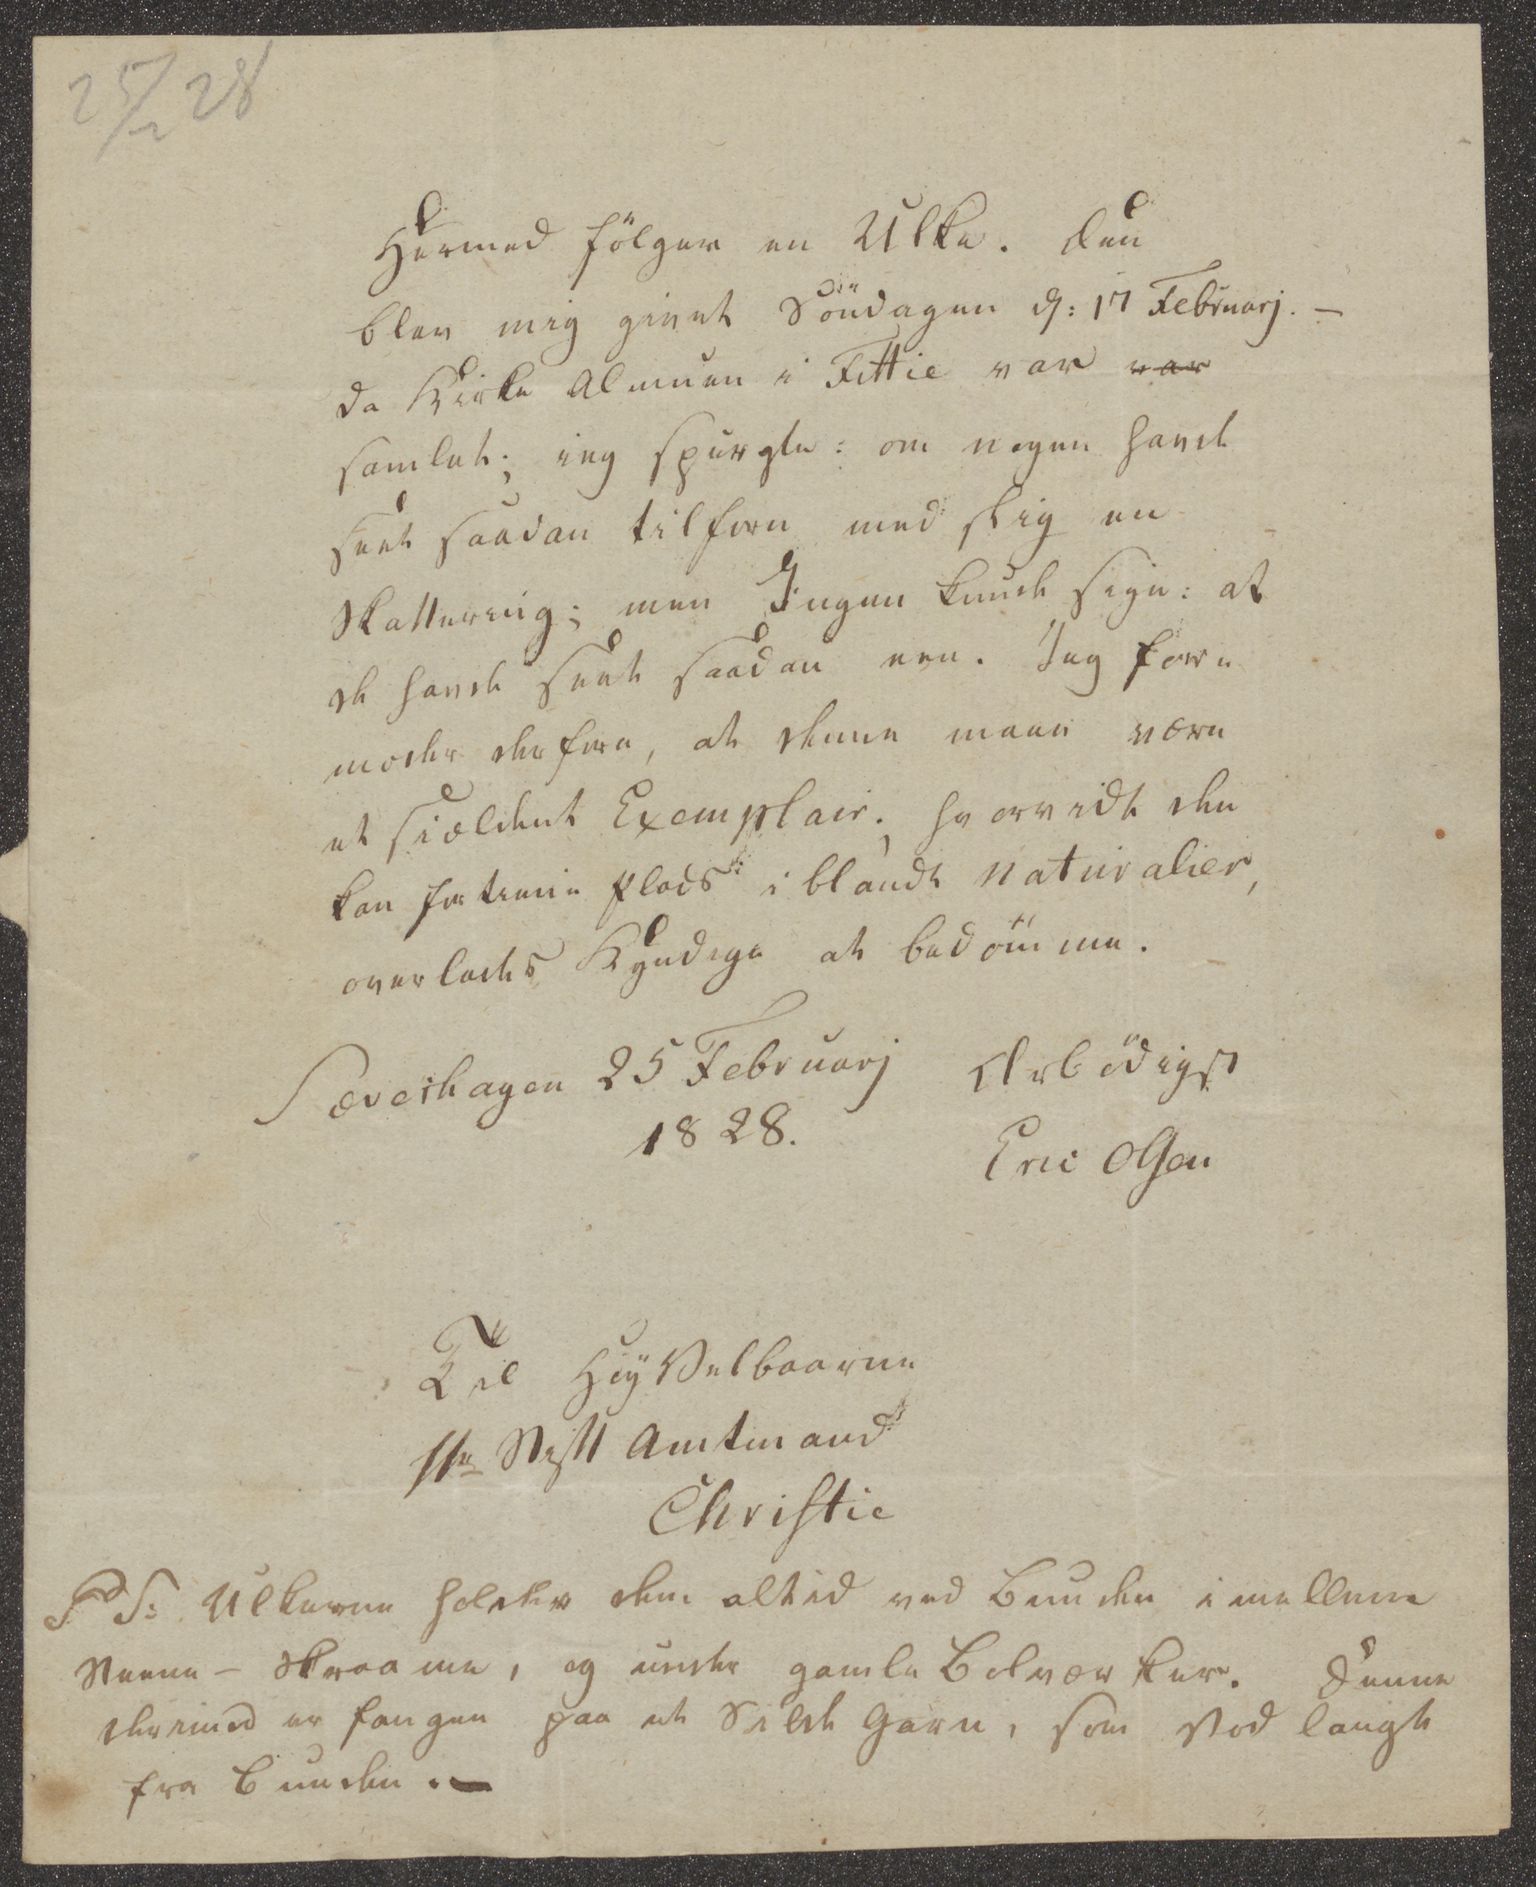 25/2 28
Hermed fölger en Ulke. Den
blev mig givet Söndagen d: 17 Februarj. –
da Kirke Almuen i Fittie var var
samlet; jeg spurgte: om nogen havde
seet saadan tilforn med slig en
Skattering; men Ingen kunde sige: at
de havde seet saadan een. Jeg for-
moder derfore, at denne maae være
et siældent Exemplair; hvorvidt den
kan fortiene Plads iblandt Naturalier,
overlades Kyndige at bedömme.
Sævershagen 25 Februarj
1828.
Ærbödigst
Eric Olsen
Til HöyVelbaarne
Hr Stift Amtmand
Christie
P S: Ulkerne holder dem altid ved Bunden imellem
Steene – Skraame, og under gamle Bolværker. Denne
derimod er fangen paa et Silde Garn, som stod langt
fra Bunden. –